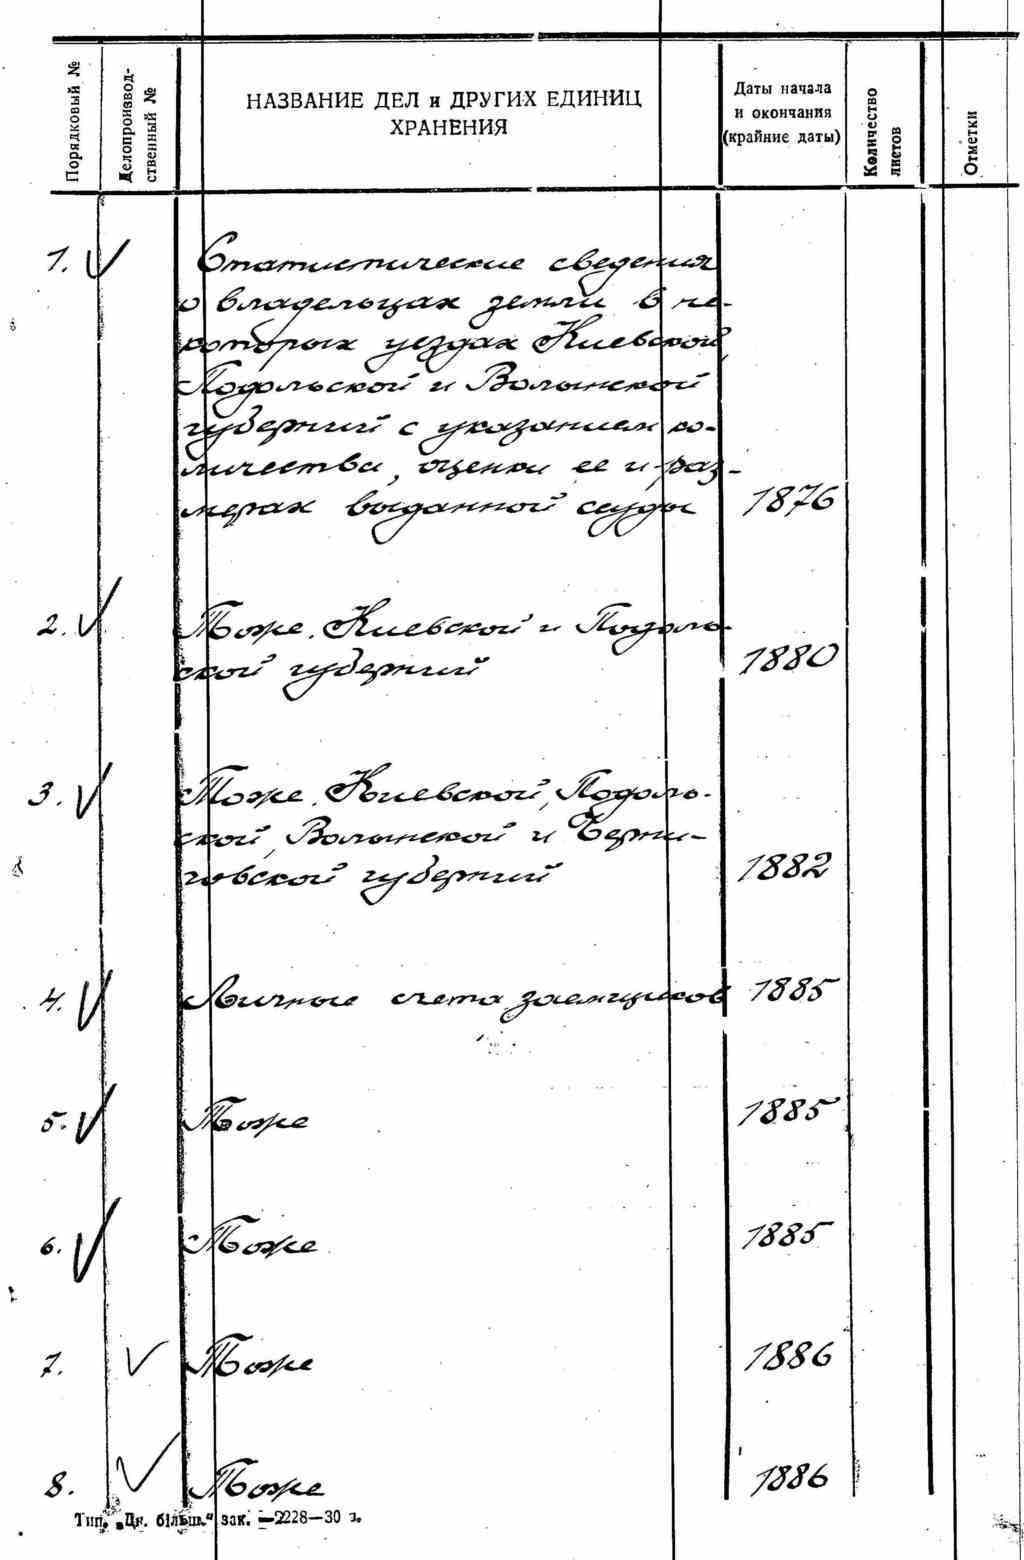 Порядковый №
Делопроизвод-
ственный №
НАЗВАНИЕ ДЕЛ и ДРУГИХ ЕДИНИЦ
ХРАНЕНИЯ
Даты начала
и окончания
(крайние даты)
Количество
листов
Отметки
1. Статистические сведения
о владельцах земли в не-
которых уездах Киевской,
Подольской и Волынской
губерний с указанием ко-
личества, оценки ее и раз-
мерах выданной ссуды 1876
2. Тоже, Киевской и Подоль-
ской губерний 1880
3. Тоже, Киевской, Подоль-
ской, Волынской и Черни-
говской губерний 1882
4. Личные счета заемщиков 1885
5. Тоже 1885
6. Тоже 1885
7. Тоже 1886
8. Тоже 1886
Тип. „Дн. більш." зак. —2228—30 з.